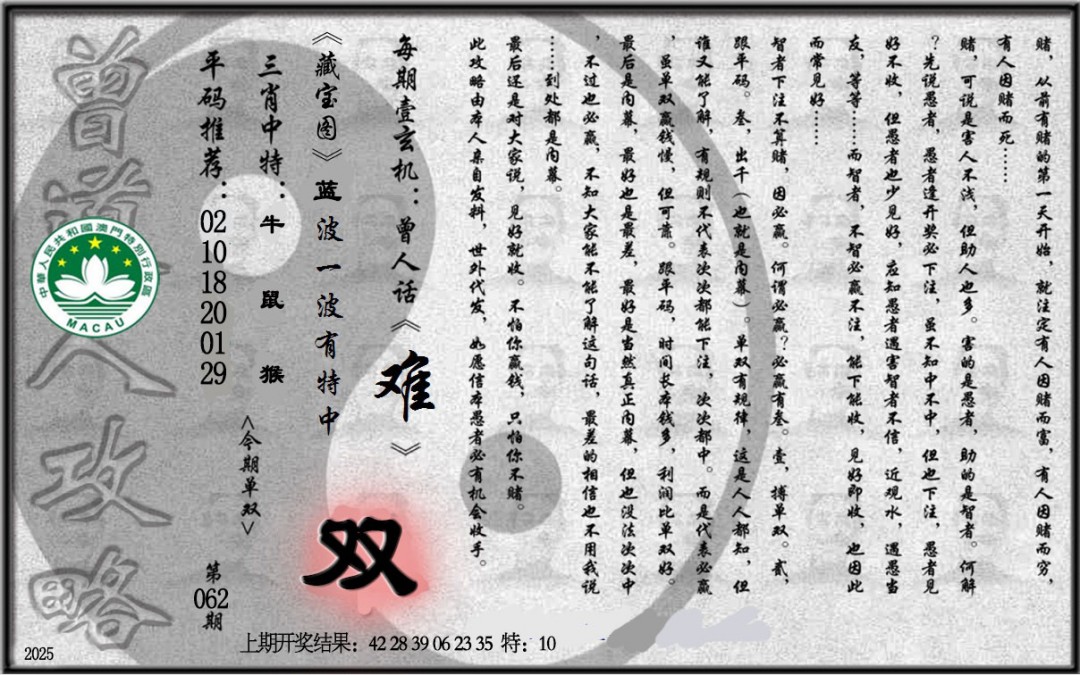 赌，从前有赌的第一天开始，就注定有人因赌而富，有人因赌而穷，
有人因赌而死……
赌，可说是害人不浅，但助人也多。害的是愚者，助的是智者。何解
？先说愚者，愚者逢开奖必下注，虽不知中不中，但也下注，愚者见
好不收，但愚者也少见好，应知愚者遇害智者不信，近观水，遇愚当
友，等等……而智者，不智必赢不注，能下能收，见好即收，也因此
而常见好……
智者下注不算赌，因必赢。何谓必赢？必赢有叁。壹，搏单双。贰，
跟平码。叁，出千（也就是内幕）。单双有规律，这是人人都知，但
谁又能了解，有规则不代表次次都能下注，次次都中。而是代表必赢
，虽单双赢钱慢，但可靠。跟平码，时间长本钱多，利润比单双好。
最后是内幕，最好也是最差，最好是当然真正内幕，但也没法次次中
，不过也必赢，不知大家能不能了解这句话，最差的相信也不用我说
……到处都是内幕。
最后还是对大家说，见好就收。不怕你赢钱，只怕你不赌。
此攻略由本人亲自发料，世外代发，如愿信本愚者必有机会收手。
每期壹玄机：曾人话《难》
《藏宝图》蓝波一波有特中
三肖中特：牛 鼠 猴
平码推荐：02 10 18 20 01 29
<今期单双>
双
第062期
曾道人攻略
中華人民共和國澳門特別行政區
MACAU
上期开奖结果：42 28 39 06 23 35 特：10
2025